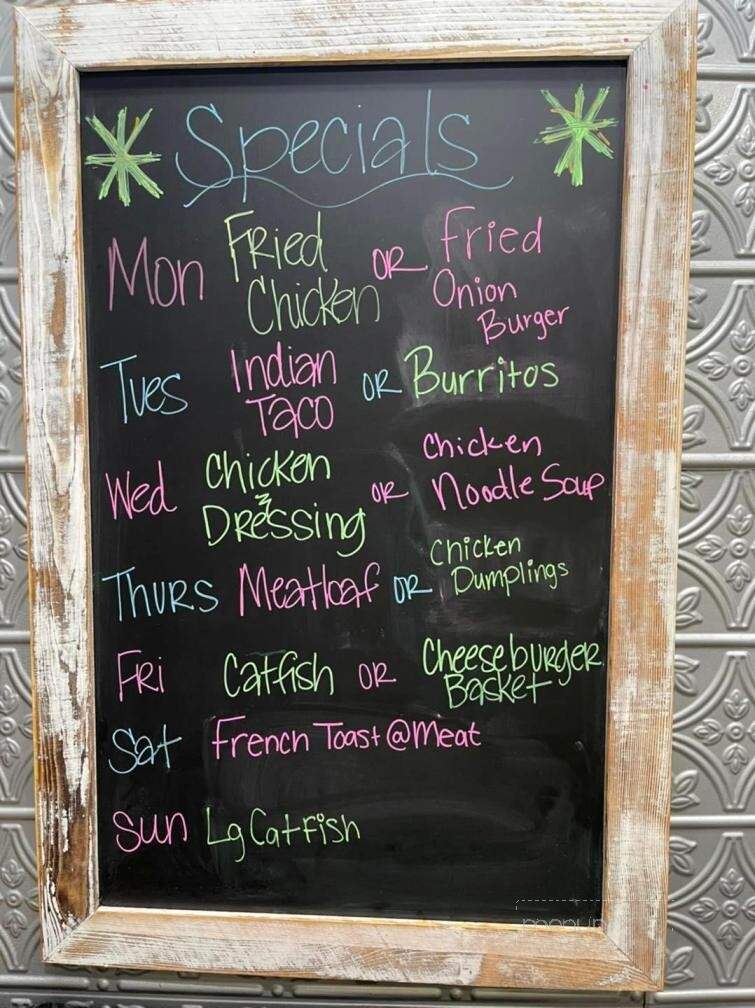 Specials
Mon Fried Chicken OR Fried Onion Burger
Tues Indian Taco OR Burritos
Wed Chicken & Dressing OR Chicken Noodle Soup
Thurs Meatloaf OR Chicken Dumplings
Fri Catfish OR Cheeseburger Basket
Sat French Toast @ Meat
Sun Lg Catfish